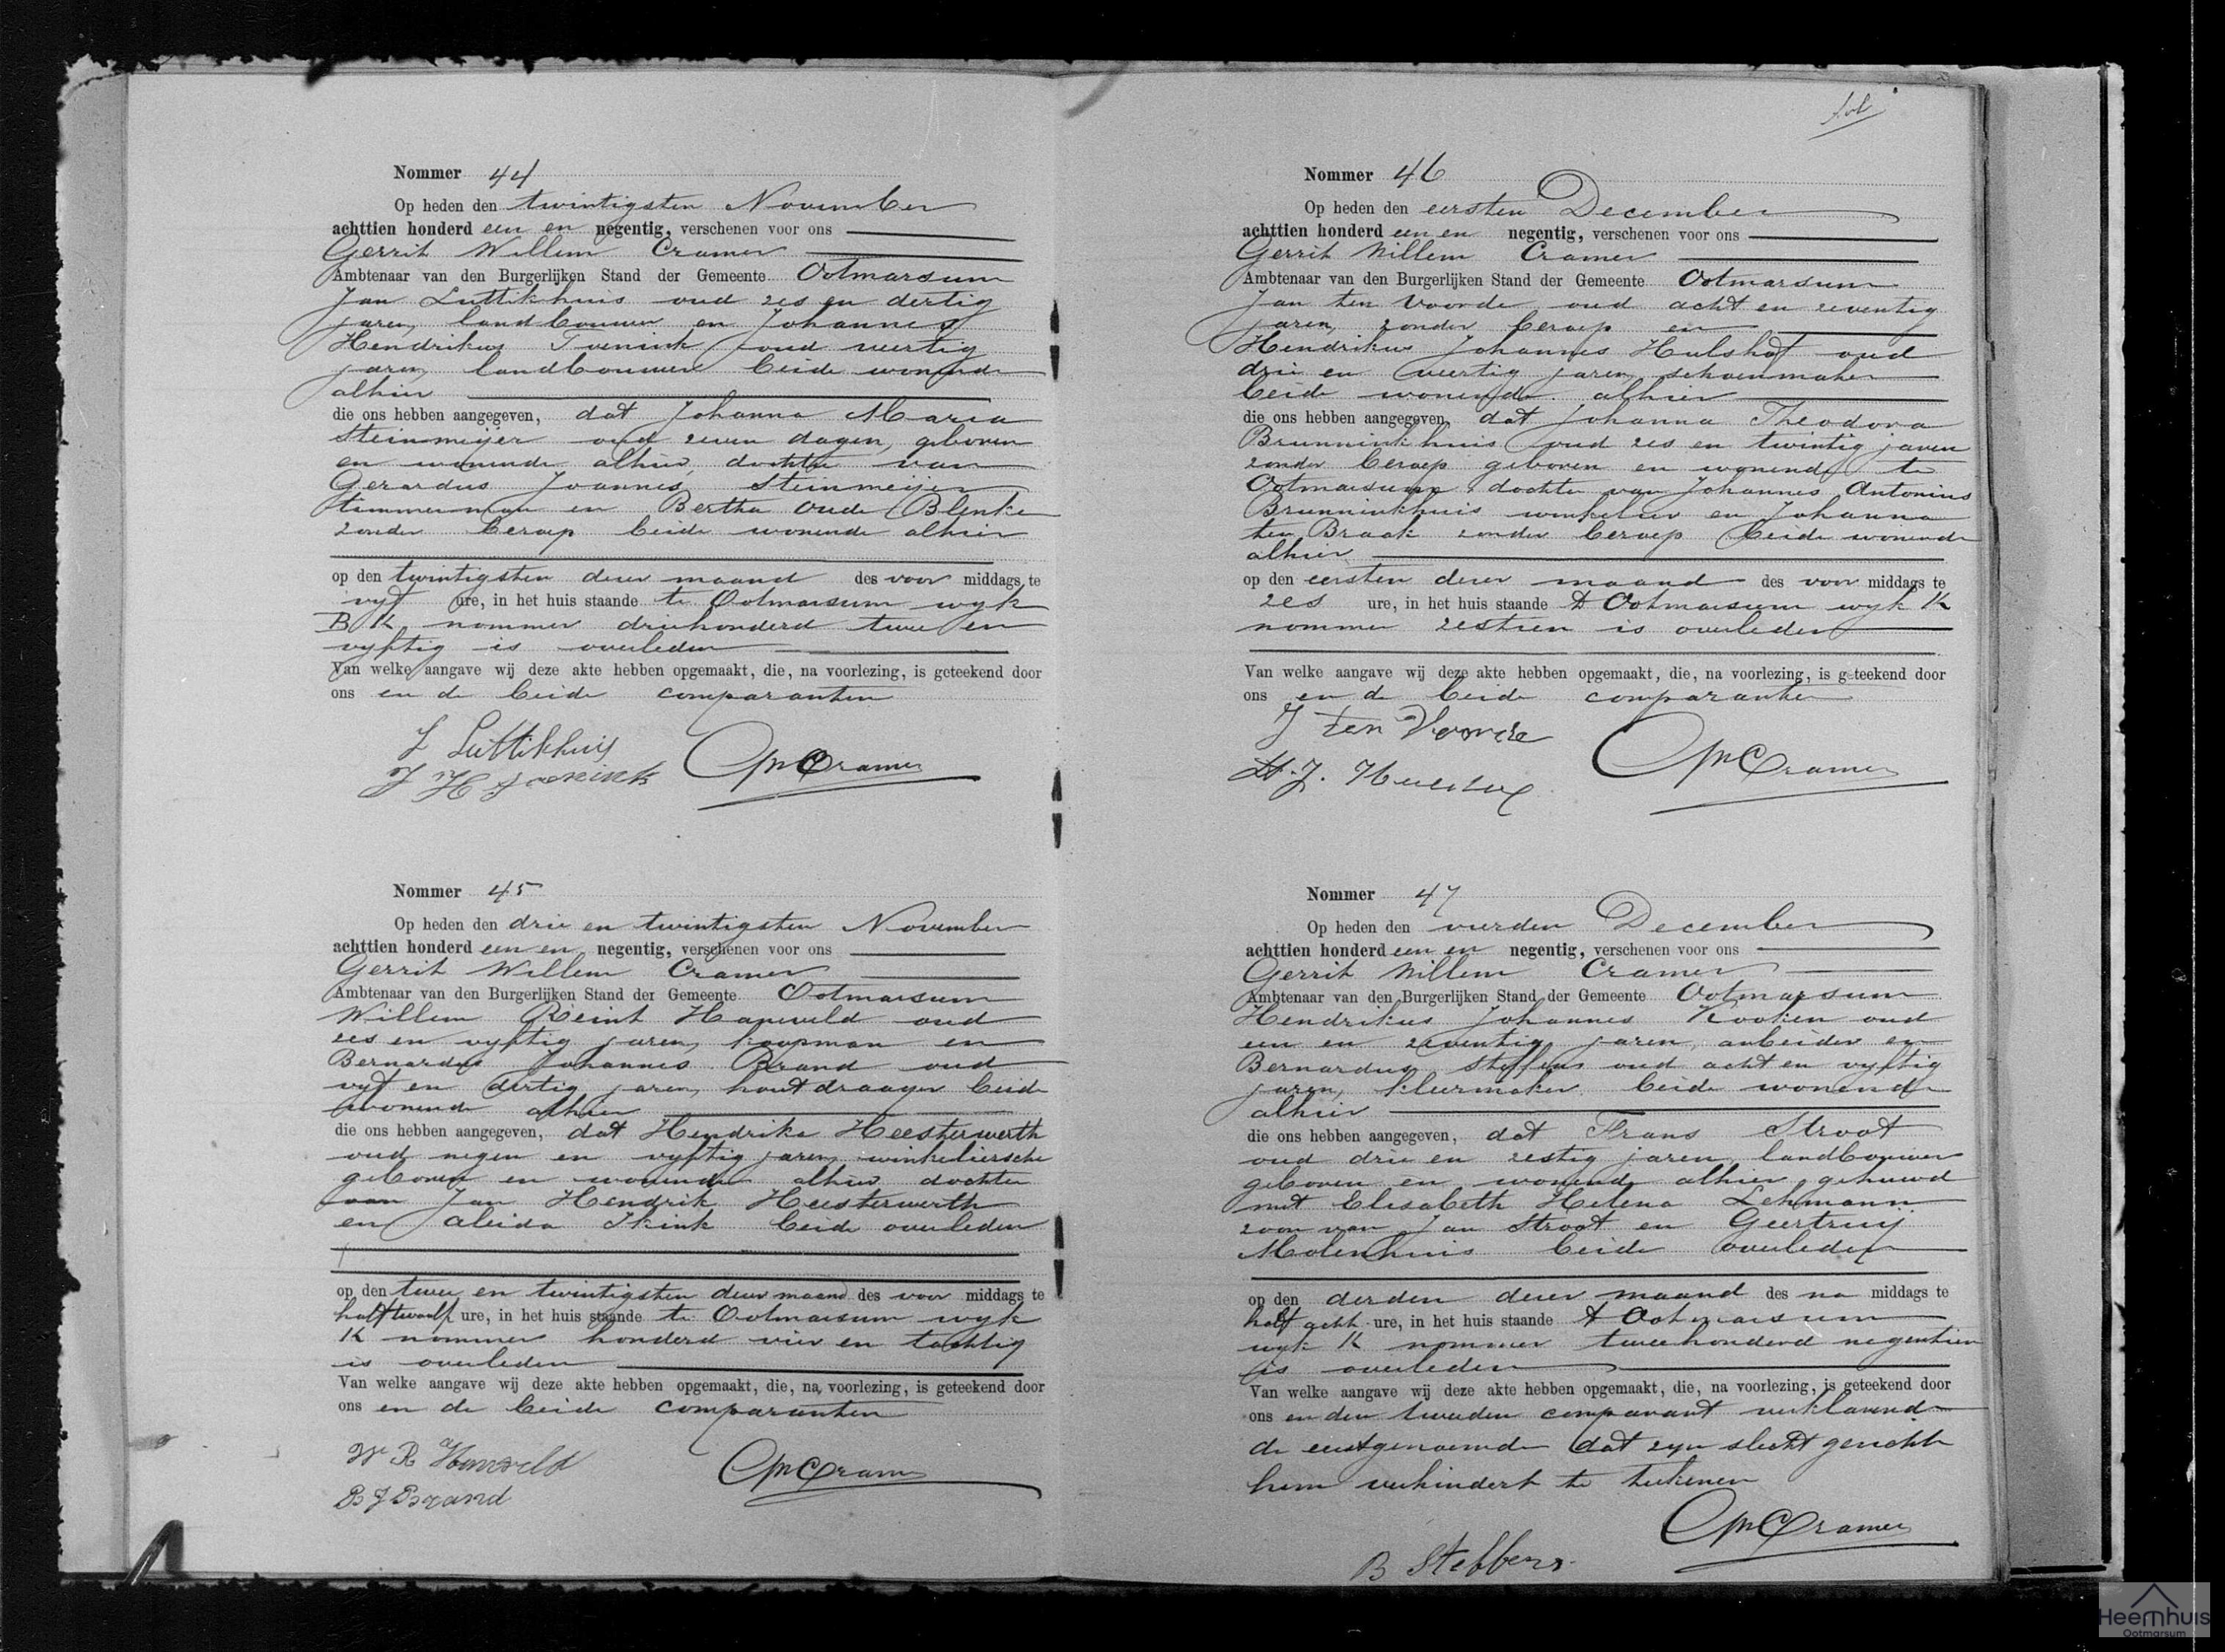 Nommer 44
Op heden den twintigsten November
achttien honderd een en negentig, verschenen voor ons
Gerrit Willem Cramer
Ambtenaar van den Burgerlijken Stand der Gemeente Ootmarsum
Jan Luttikhuis oud zes en dertig
jaren, landbouwer en Johannes
Hendrikus oud veertig
jaren, landbouwer beide wonende
alhier
die ons hebben aangegeven, dat Johanna Maria
Steinmeijer oud zeven dagen, geboren
en wonende alhier, dochter van
Gerardus Joannes Steinmeijer
timmerman en Bertha Oude Blenke
zonder beroep beide wonende alhier
op den twintigsten dezer maand des voor middags te
vijf ure, in het huis staande te Ootmarsum wijk
B K nommer driehonderd twee en
vijftig is overleden
Van welke aangave wij deze akte hebben opgemaakt, die, na voorlezing, is geteekend door
ons en de beide comparanten
J Luttikhuis
J H
GWCramer
Nommer 45
Op heden den drie en twintigsten November
achttien honderd een en negentig, verschenen voor ons
Gerrit Willem Cramer
Ambtenaar van den Burgerlijken Stand der Gemeente Ootmarsum
Willem Reint Haneveld oud
zes en vijftig jaren, koopman en
Bernardus Johannes Brand oud
vijf en dertig jaren, houtdraager beide
wonende alhier
die ons hebben aangegeven, dat Hendrika Heesterwerth
oud negen en vijftig jaren, winkeliersche
geboren en wonende alhier dochter
van Jan Hendrik Heesterwerth
en Aleida Ikink beide overleden
op den twee en twintigsten dezer maand des voor middags te
half twaalf ure, in het huis staande te Ootmarsum wijk
K nommer honderd vier en tachtig
is overleden
Van welke aangave wij deze akte hebben opgemaakt, die, na voorlezing, is geteekend door
ons en de beide comparanten
W R Haneveld
GWCramer
B J Brand
Nommer 46
Op heden den eersten December
achttien honderd een en negentig, verschenen voor ons
Gerrit Willem Cramer
Ambtenaar van den Burgerlijken Stand der Gemeente Ootmarsum
Jan ten Voorde oud acht en zeventig
jaren, zonder beroep en
Hendrikus Johannes Hulshof oud
drie en veertig jaren schoenmaker
beide wonende alhier
die ons hebben aangegeven, dat Johanna Theodora
Brunninkhuis oud zes en twintig jaren
zonder beroep geboren en wonende te
Ootmarsum dochter van Johannes Antonius
Brunninkhuis winkelier en Johanna
ten Braak zonder beroep beide wonende
alhier
op den eersten dezer maand des voor middags te
zes ure, in het huis staande te Ootmarsum wijk K
nommer zestien is overleden
Van welke aangave wij deze akte hebben opgemaakt, die, na voorlezing, is geteekend door
ons en de beide comparanten
J ten Voorde
GWCramer
H.J. Hulshof
Nommer 47
Op heden den vierden December
achttien honderd een en negentig, verschenen voor ons
Gerrit Willem Cramer
Ambtenaar van den Burgerlijken Stand der Gemeente Ootmarsum
Hendrikus Johannes Kooken oud
een en zeventig jaren, arbeider en
Bernardus Steffens oud acht en vijftig
jaren, kleermaker beide wonende
alhier
die ons hebben aangegeven, dat Frans Stroot
oud drie en zestig jaren, landbouwer
geboren en wonende alhier, gehuwd
met Elisabeth Helena Lehmann
zoon van Jan Stroot en Geertruij
Molenhuis beide overleden
op den derden dezer maand des na middags te
half acht ure, in het huis staande te Ootmarsum
wijk K nommer tweehonderd negentien
is overleden
Van welke aangave wij deze akte hebben opgemaakt, die, na voorlezing, is geteekend door
ons en den tweeden comparant verklarende
de eerstgenoemde dat zijn slecht gezicht
hem verhindert te teekenen
GWCramer
B Steffens
Heemhuis
Ootmarsum